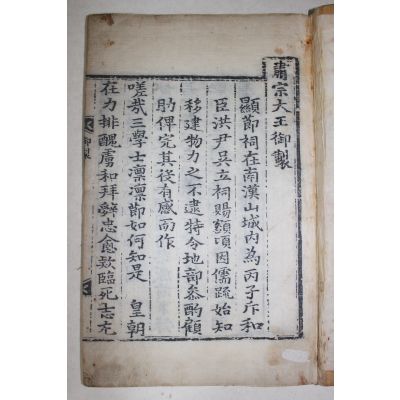 肅宗大王御製
顯節祠在南漢山城內為丙子斥和
臣洪尹吳立祠賜額頃因儒疏始知
移建物力之不逮特令地部參酌顧
助俾完其後有感而作
嗟哉三學士凜凜節如何知是　皇朝
在力排醜虜和拜辭忠愈款臨死志尤
御製